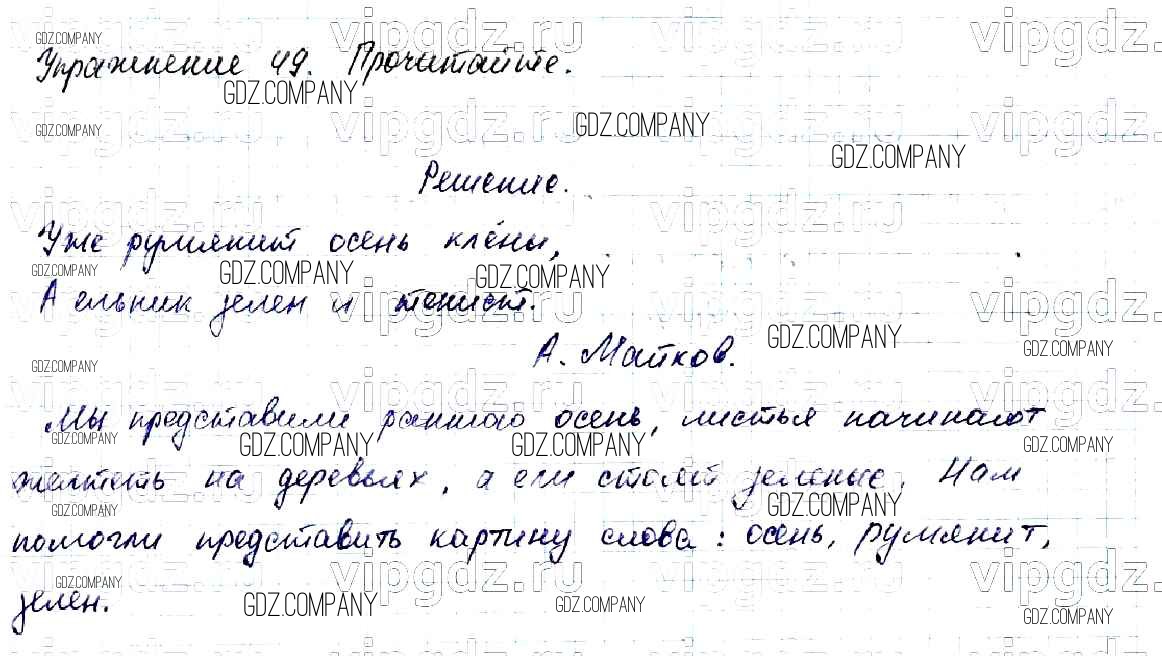 Упражнение 49. Прочитайте.
Решение.
Уже румянит осень клёны,
А ельник зелен и тенист.
А. Майков.
Мы представили раннюю осень, листья начинают
желтеть на деревьях, а ели стоят зеленые. Нам
помогли представить картину слова: осень, румянит,
зелен.